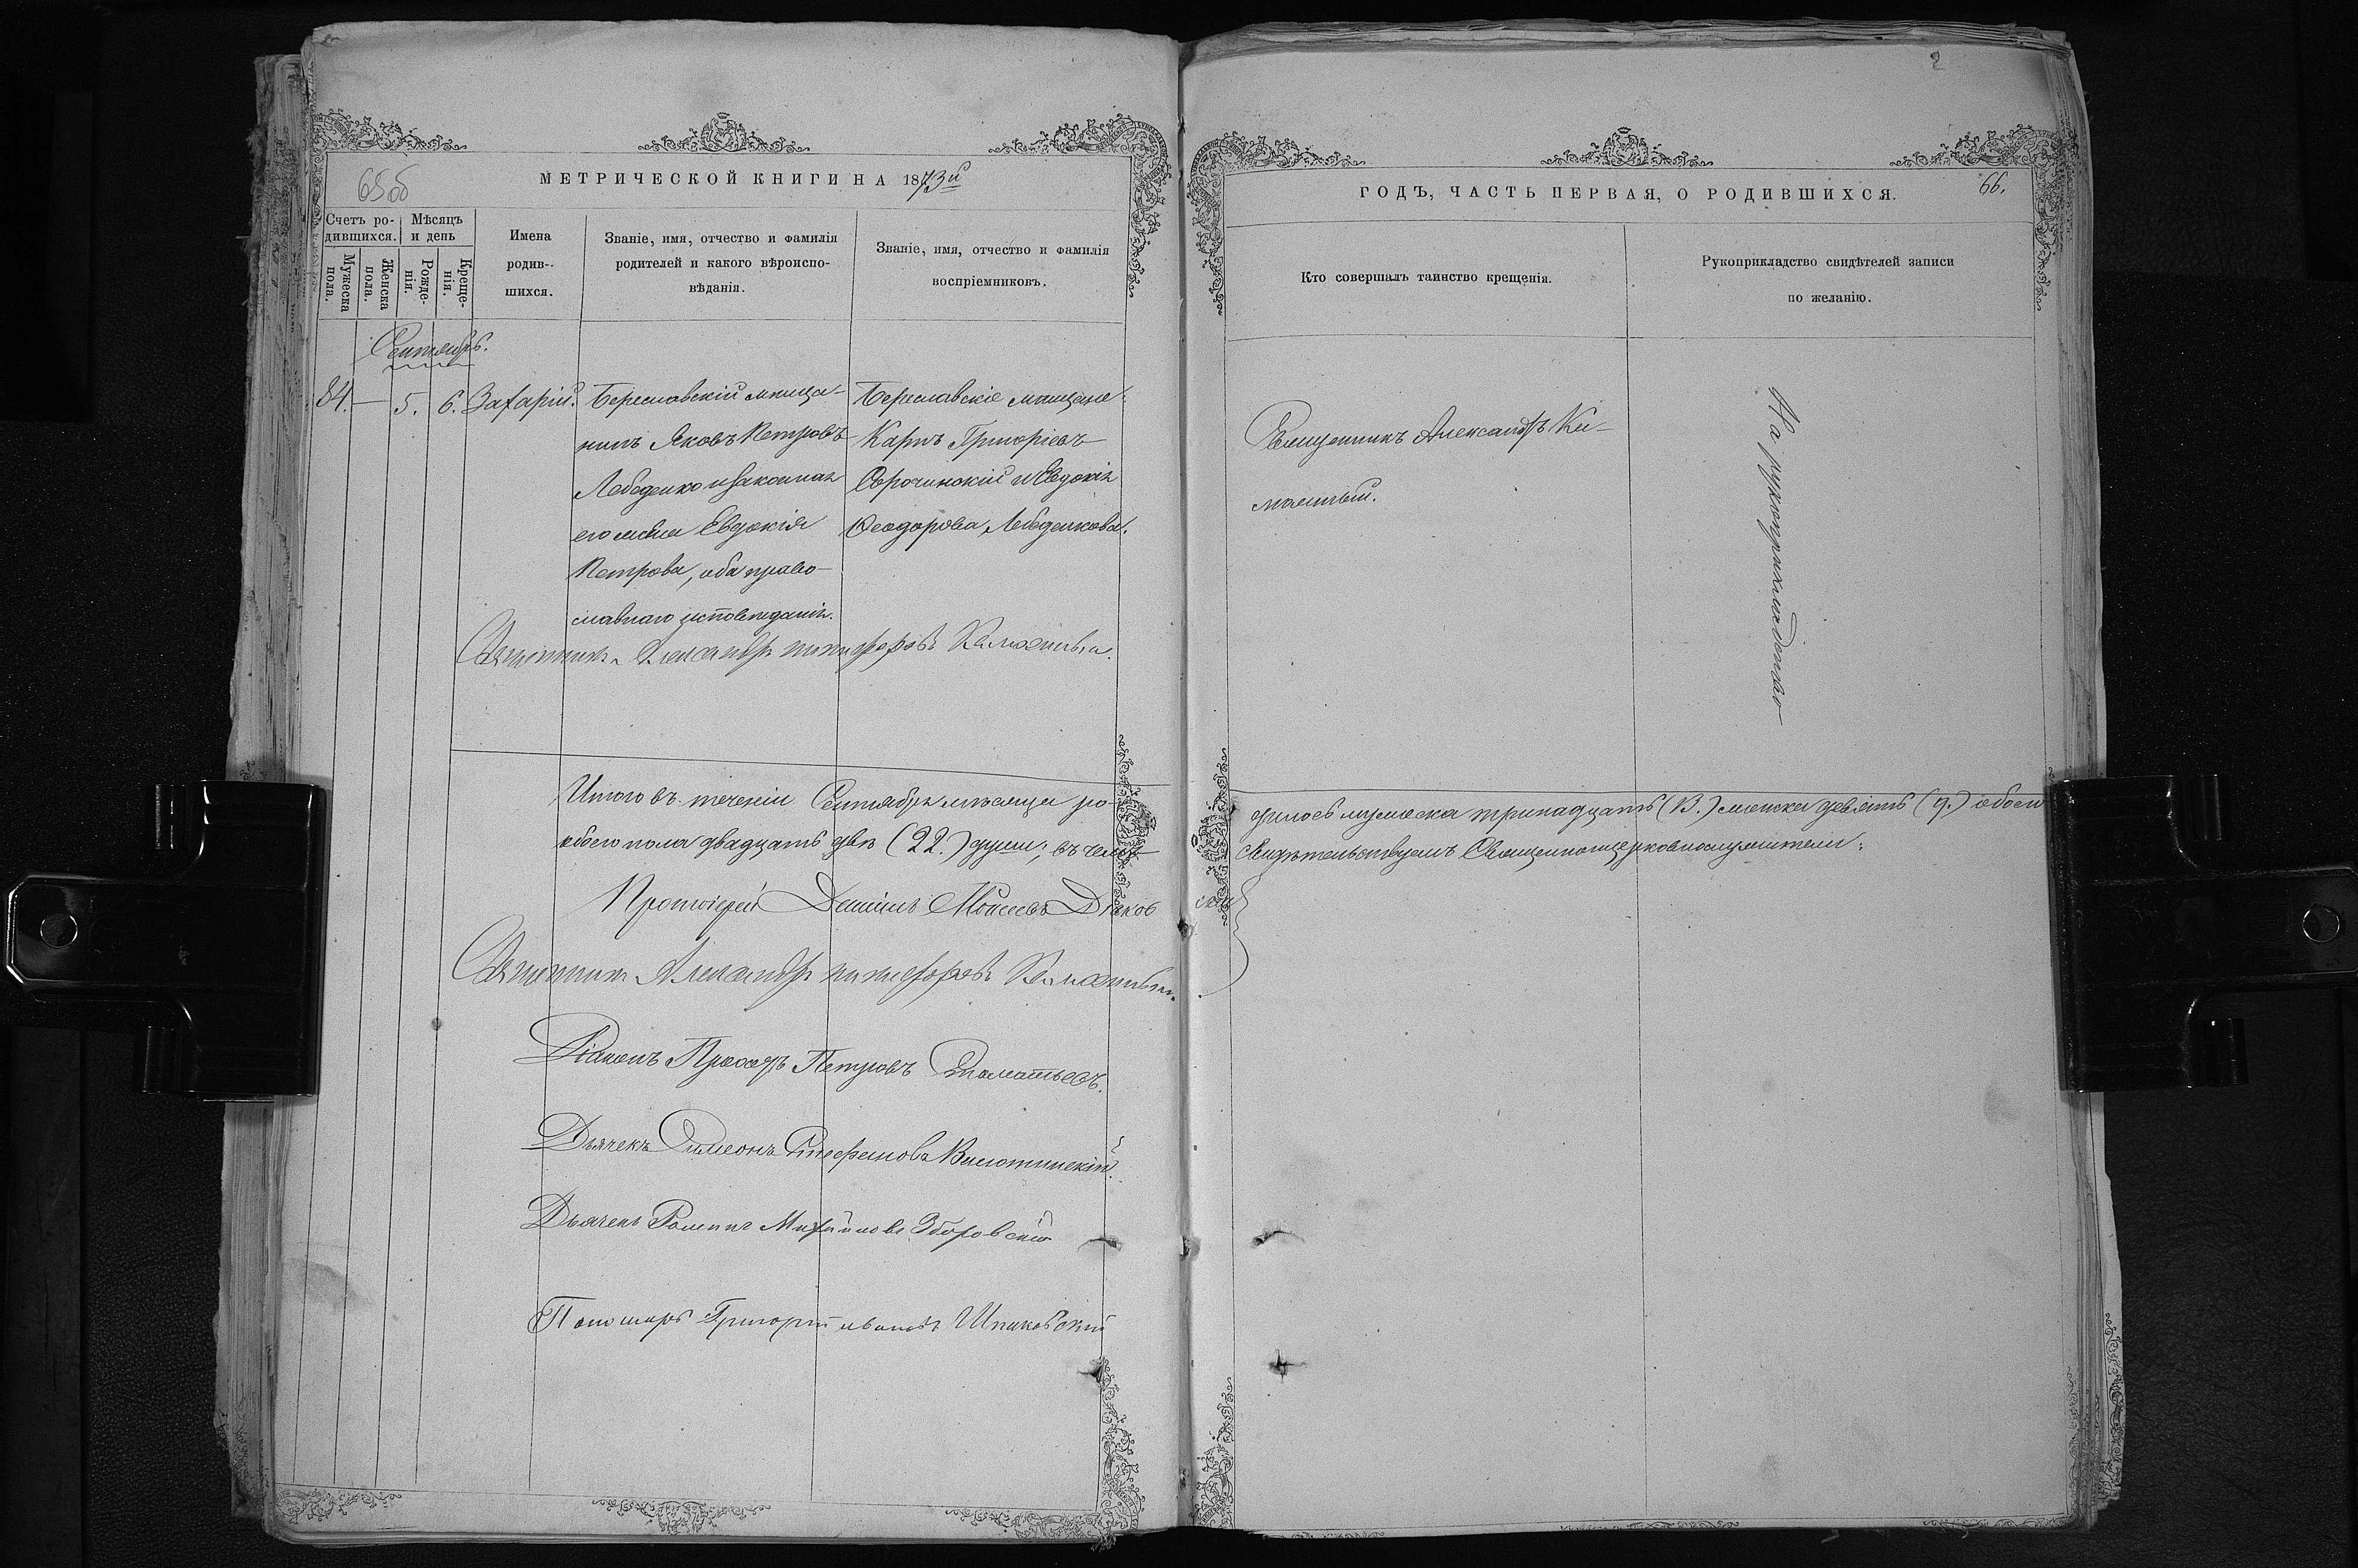 2
65об
МЕТРИЧЕСКОЙ КНИГИ НА 1873й
Счетъ ро-
дившихся.
Мѣсяцъ
и день
Мужеска
пола.
Женска
пола.
Рожде-
нія.
Креще-
нія.
Имена
родив-
шихся.
Званіе, имя, отчество и фамилія
родителей и какого вѣроиспо-
вѣданія.
Званіе, имя, отчество и фамилія
воспріемниковъ.
Сентябрь.
84. — 5. 6. Захарій.
Береславскій мѣща-
нинъ Яковъ Петровъ
Лебеденко и законная
его жена Евдокія
Петрова, оба право-
славнаго исповѣданія.
Береславскіе мѣщане
Карпъ Григоріевъ
и Евдокія
Ѳеодорова Лебеденкова.
Священникъ Александръ Никифоровъ
Итого въ теченіи Сентября мѣсяца ро-
обоего пола двадцать двѣ (22.) души; въ чемъ
Протоіерей Моисеевъ
Священникъ Александръ Никифоровъ
Діаконъ Прохоръ Петровъ
Дьячекъ Симеонъ Стефановъ
Дьячекъ Романъ Михайловъ Зборовскій
Пономарь Григорій Ивановъ Шпаковскій
ГОДЪ, ЧАСТЬ ПЕРВАЯ, О РОДИВШИХСЯ.
66.
Кто совершалъ таинство крещенія.
Рукоприкладство свидѣтелей записи
по желанію.
Священникъ Александръ
На рукоприкладство
дилось мужеска тринадцать (13.) женска девять (9.) обоего
свидѣтельствуемъ Священноицерковнослужители: